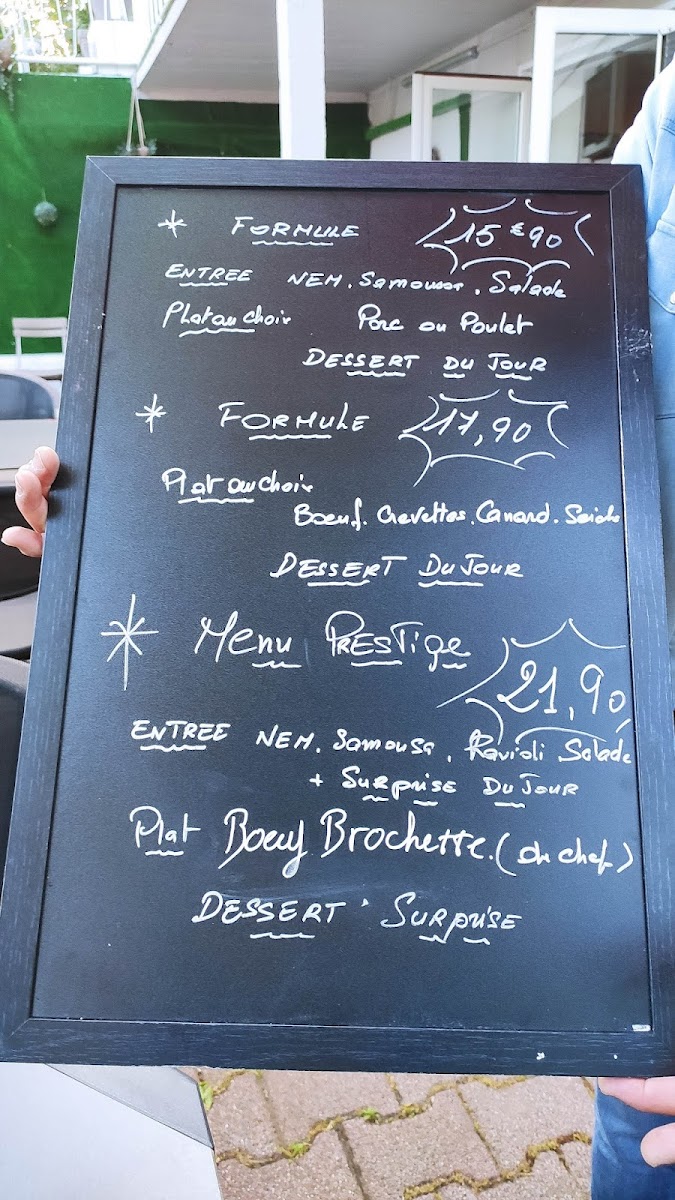 * FORMULE 15€90
ENTREE NEM. Samoussa. Salade
Plat au choix Porc ou Poulet
DESSERT DU JOUR
* FORMULE 17,90
Plat au choix
Boeuf. Crevettes. Canard. Seiche
DESSERT DU JOUR
* Menu PRESTige 21,90
ENTREE NEM. Samousa. Ravioli Salade
+ SURPRISE DU JOUR
Plat Boeuf Brochette. (du chef)
DESSERT. SURPRISE